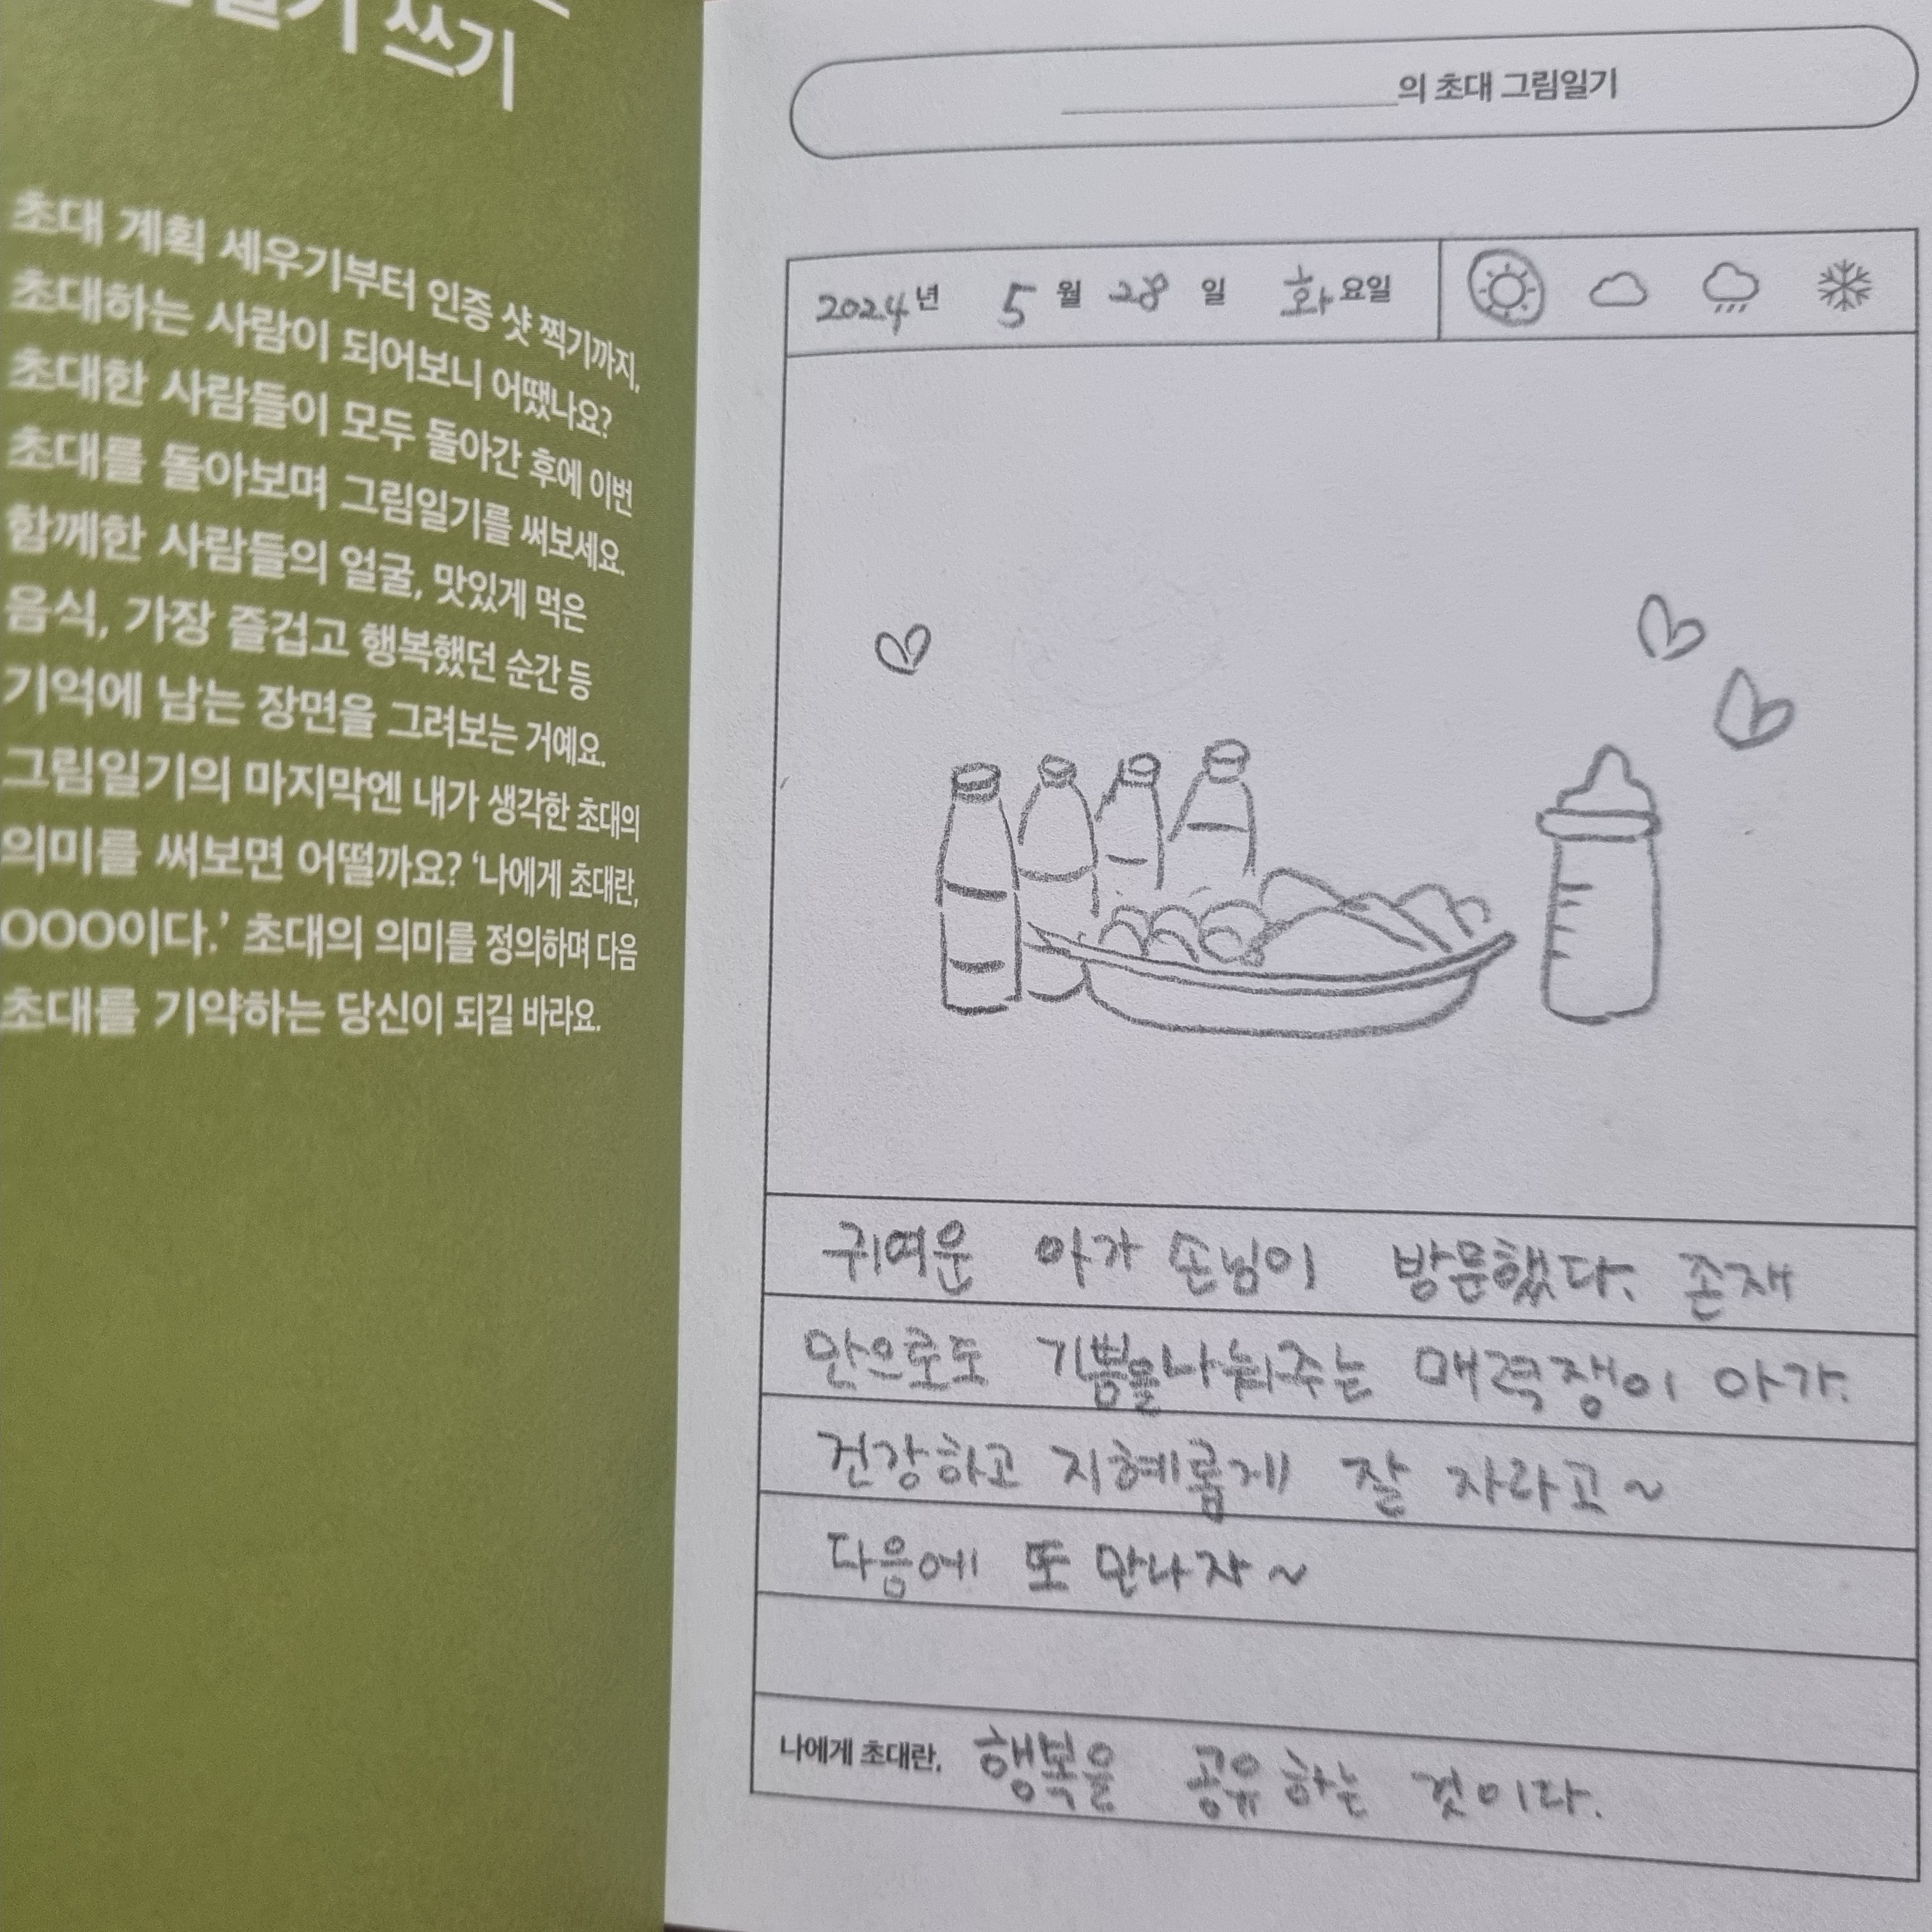 쓰기
초대 계획 세우기부터 인증 샷 찍기까지,
초대하는 사람이 되어보니 어땠나요?
초대한 사람들이 모두 돌아간 후에 이번
초대를 돌아보며 그림일기를 써보세요.
함께한 사람들의 얼굴, 맛있게 먹은
음식, 가장 즐겁고 행복했던 순간 등
기억에 남는 장면을 그려보는 거예요.
그림일기의 마지막엔 내가 생각한 초대의
의미를 써보면 어떨까요? ‘나에게 초대란,
OOO이다.’ 초대의 의미를 정의하며 다음
초대를 기약하는 당신이 되길 바라요.
의 초대 그림일기
2024년 5월 28일 화요일
귀여운 아가 손님이 방문했다. 존재
만으로도 기쁨을나눠주는 매력쟁이 아가.
건강하고 지혜롭게 잘 자라고~
다음에 또 만나자~
나에게 초대란, 행복을 공유하는 것이다.